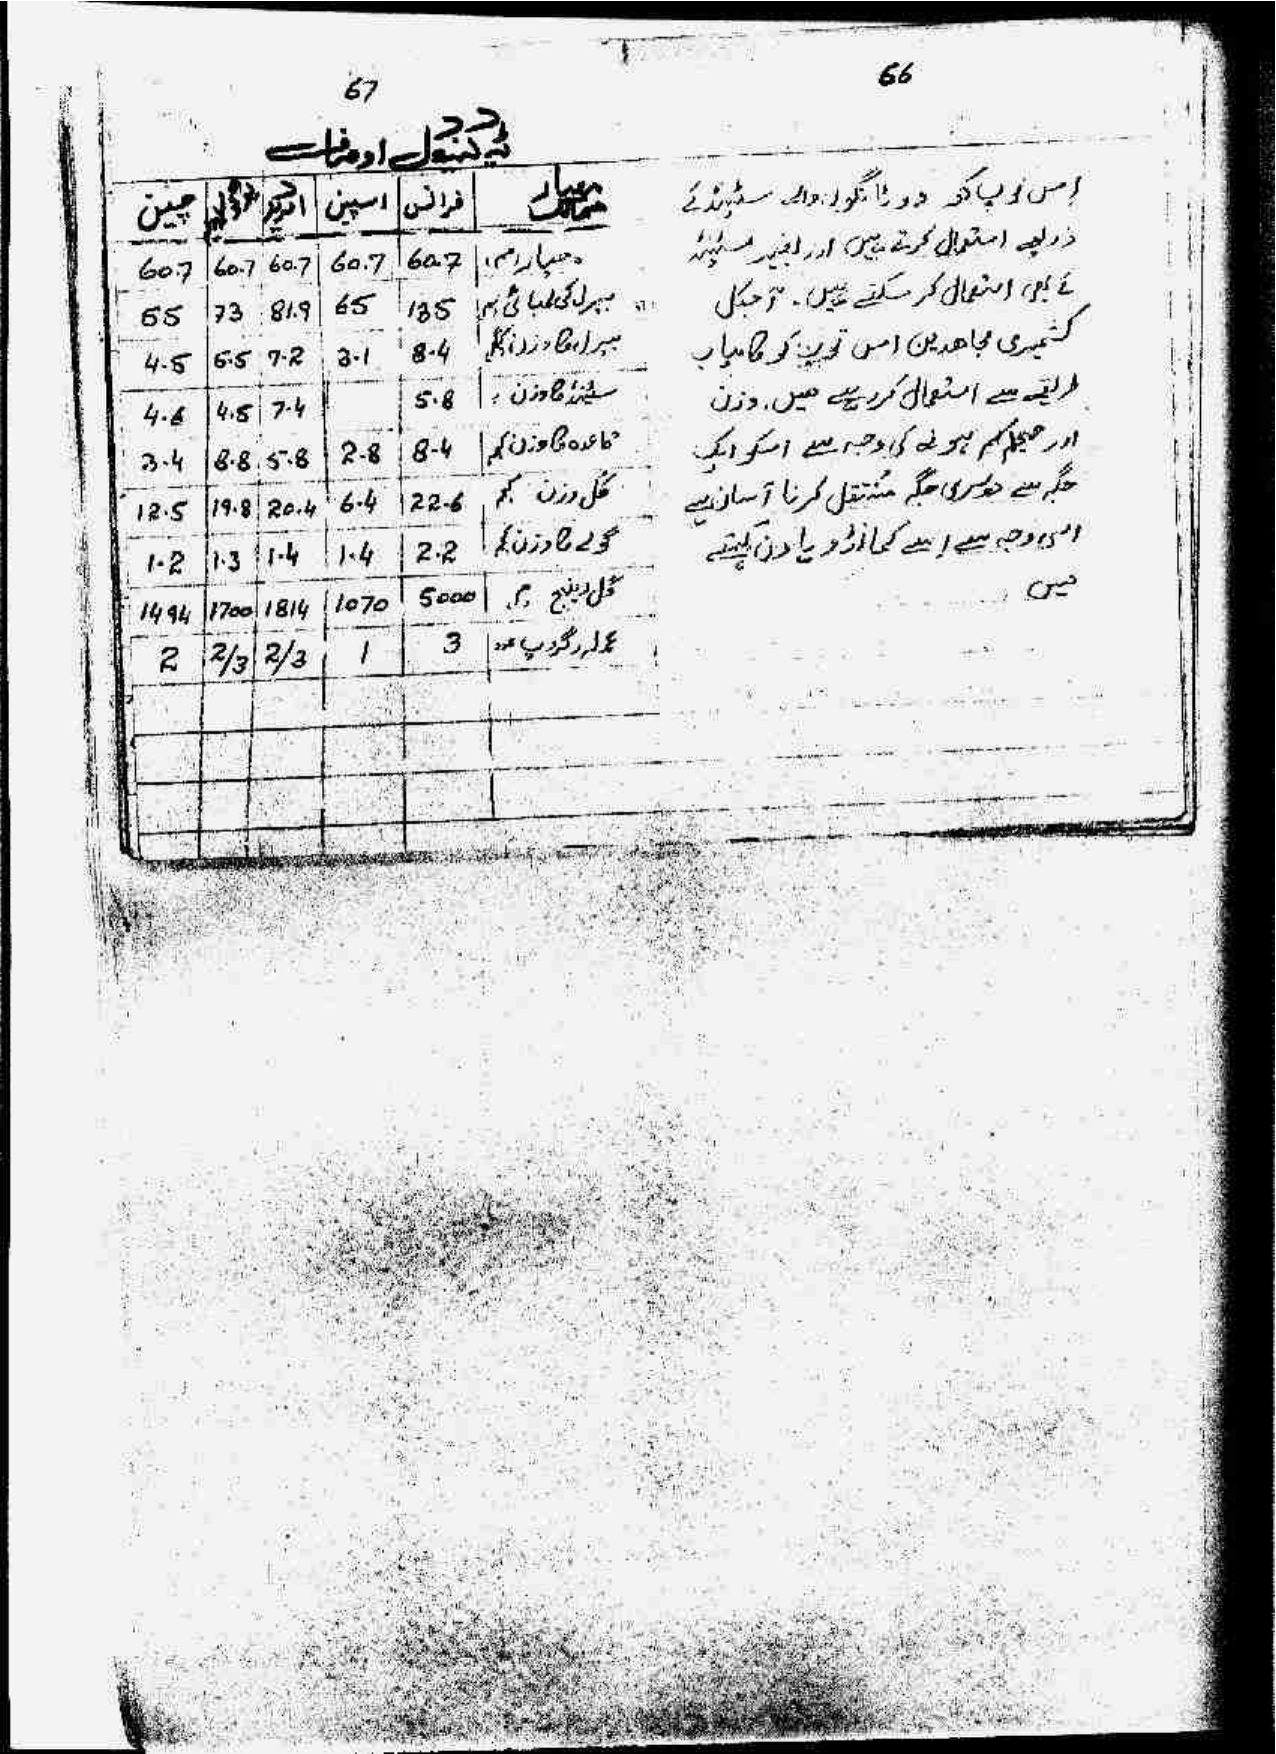 66
اس توپ کو دو ٹانگوں والے سٹینڈ کے
ذریعے استعمال کرتے ہیں اور بغیر سٹینڈ
کے بھی استعمال کر سکتے ہیں۔ آجکل
کشمیری مجاھدین اس توپ کو کامیاب
طریقے سے استعمال کر رہے ھیں۔ وزن
اور حجم کم ہونے کی وجہ سے اسکو ایک
جگہ سے دوسری جگہ منتقل کرنا آسان ہے
اسی وجہ سے اسے کمانڈو یا گن کہتے
ھیں
67
ٹیکنیکل اوصاف
ممالک فرانس اسپین امریکہ چین
معیار 60.7 60.7 60.7 60.7 60.7
بیرل کی لمبائی 135 65 81.9 73 55
بیرل کا وزن 8.4 3.1 7.2 6.5 4.5
سٹینڈ کا وزن 5.8 7.4 4.5 4.6
قاعدہ کا وزن 8.4 2.8 5.8 8.8 3.4
کل وزن 22.6 6.4 20.4 19.8 12.5
گولے کا وزن 2.2 1.4 1.4 1.3 1.2
کل رینج 5000 1070 1814 1700 1494
عملہ گروپ عدد 3 1 2/3 2/3 2